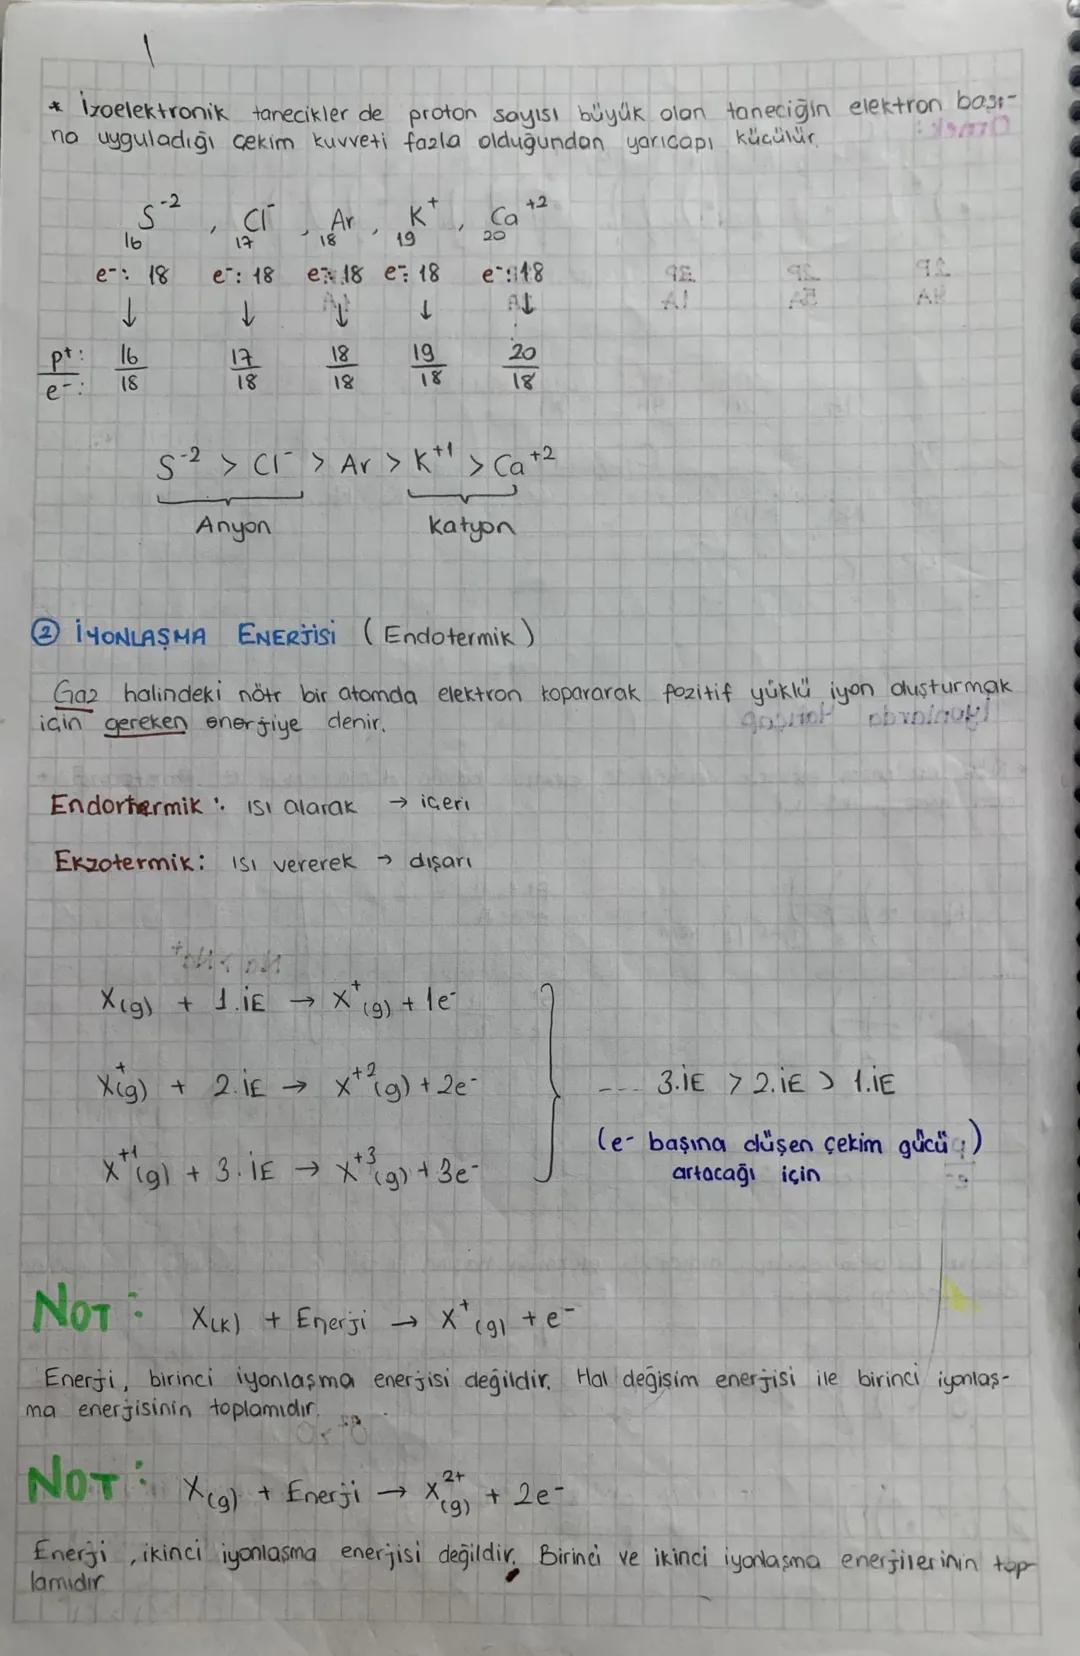 * İzoelektronik tanecikler de proton sayısı büyük olan taneciğin elektron başı-
na uyguladığı çekim kuvveti fazla olduğundan yarıçapı küçülür.
₁₆S⁻² , ₁₇Cl⁻ , ₁₈Ar , ₁₉K⁺ , ₂₀Ca⁺²
e⁻: 18 e⁻: 18 e⁻: 18 e⁻: 18 e⁻: 18
↓ ↓ ↓ ↓ ↓
p⁺: 16 17 18 19 20
e⁻: 18 18 18 18 18
S⁻² > Cl⁻ > Ar > K⁺¹ > Ca⁺²
Anyon Katyon
② İYONLAŞMA ENERJİSİ (Endotermik)
Gaz halindeki nötr bir atomda elektron kopararak pozitif yüklü iyon oluşturmak
için gereken enerjiye denir.
Endortermik : ısı alarak → içeri
Ekzotermik: ısı vererek → dışarı
X(g) + 1.İE → X⁺(g) + 1e⁻
X⁺(g) + 2.İE → X⁺²(g) + 2e⁻
--- 3.İE > 2.İE > 1.İE
(e⁻ başına düşen çekim gücü
artacağı için
)
X⁺¹(g) + 3.İE → X⁺³(g) + 3e⁻
NOT : X(k) + Enerji → X⁺(g) + e⁻
Enerji, birinci iyonlaşma enerjisi değildir. Hal değişim enerjisi ile birinci iyonlaş-
ma enerjisinin toplamıdır.
NOT : X(g) + Enerji → X²⁺(g) + 2e⁻
Enerji , ikinci iyonlaşma enerjisi değildir. Birinci ve ikinci iyonlaşma enerjilerinin top-
lamıdır